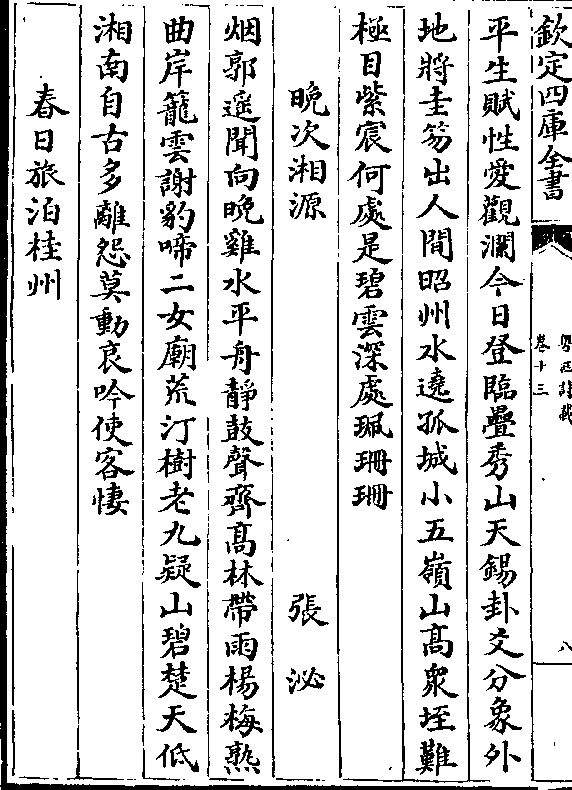 欽定四庫全書
粤西詩載
卷十三
八
平生賦性愛觀瀾今日登臨疊秀山天錫卦爻分象外
地將圭笏出人間昭州水遶孤城小五嶺山高衆垤難
極目紫宸何處是碧雲深處珮珊珊
晩次湘源 張泌
烟郭遥聞向晚雞水平舟靜鼓聲齊髙林帶雨楊梅熟
曲岸籠雲謝豹啼二女廟荒汀樹老九疑山碧楚天低
湘南自古多離怨莫動哀吟使客悽
春日旅泊桂州